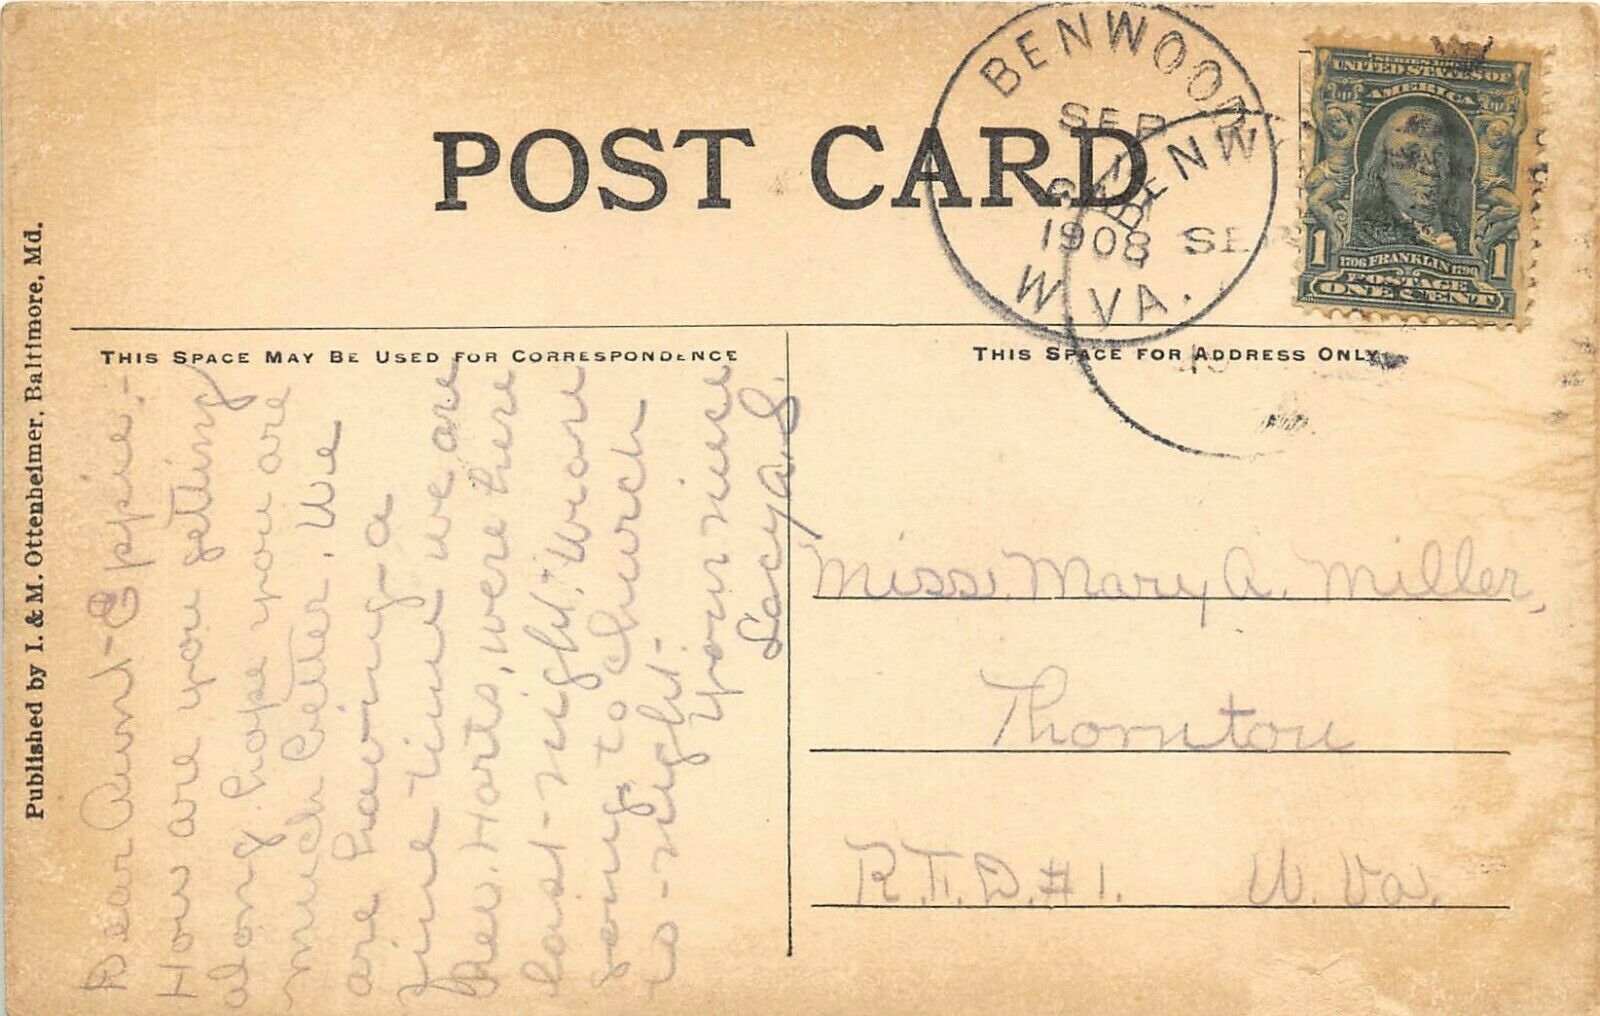 POST CARD
BENWOOD
SEP
1908
W. VA.
BENW
SEP
SERIES 1902
UNITED STATES OF
AMERICA
1706 FRANKLIN 1790
1 1
POSTAGE
ONE CENT
Published by I. & M. Ottenheimer, Baltimore, Md.
THIS SPACE MAY BE USED FOR CORRESPONDENCE
THIS SPACE FOR ADDRESS ONLY
Dear Aunt Eppie,-
How are you getting
along, hope you are
much better. We
are having a
fine time we are
Rev. Horts, were here
last-night. We are
going to church
to-night.
your niece
Lacy A. S.
Miss. Mary A. Miller,
Thornton
R.F.D. #1. W. Va.